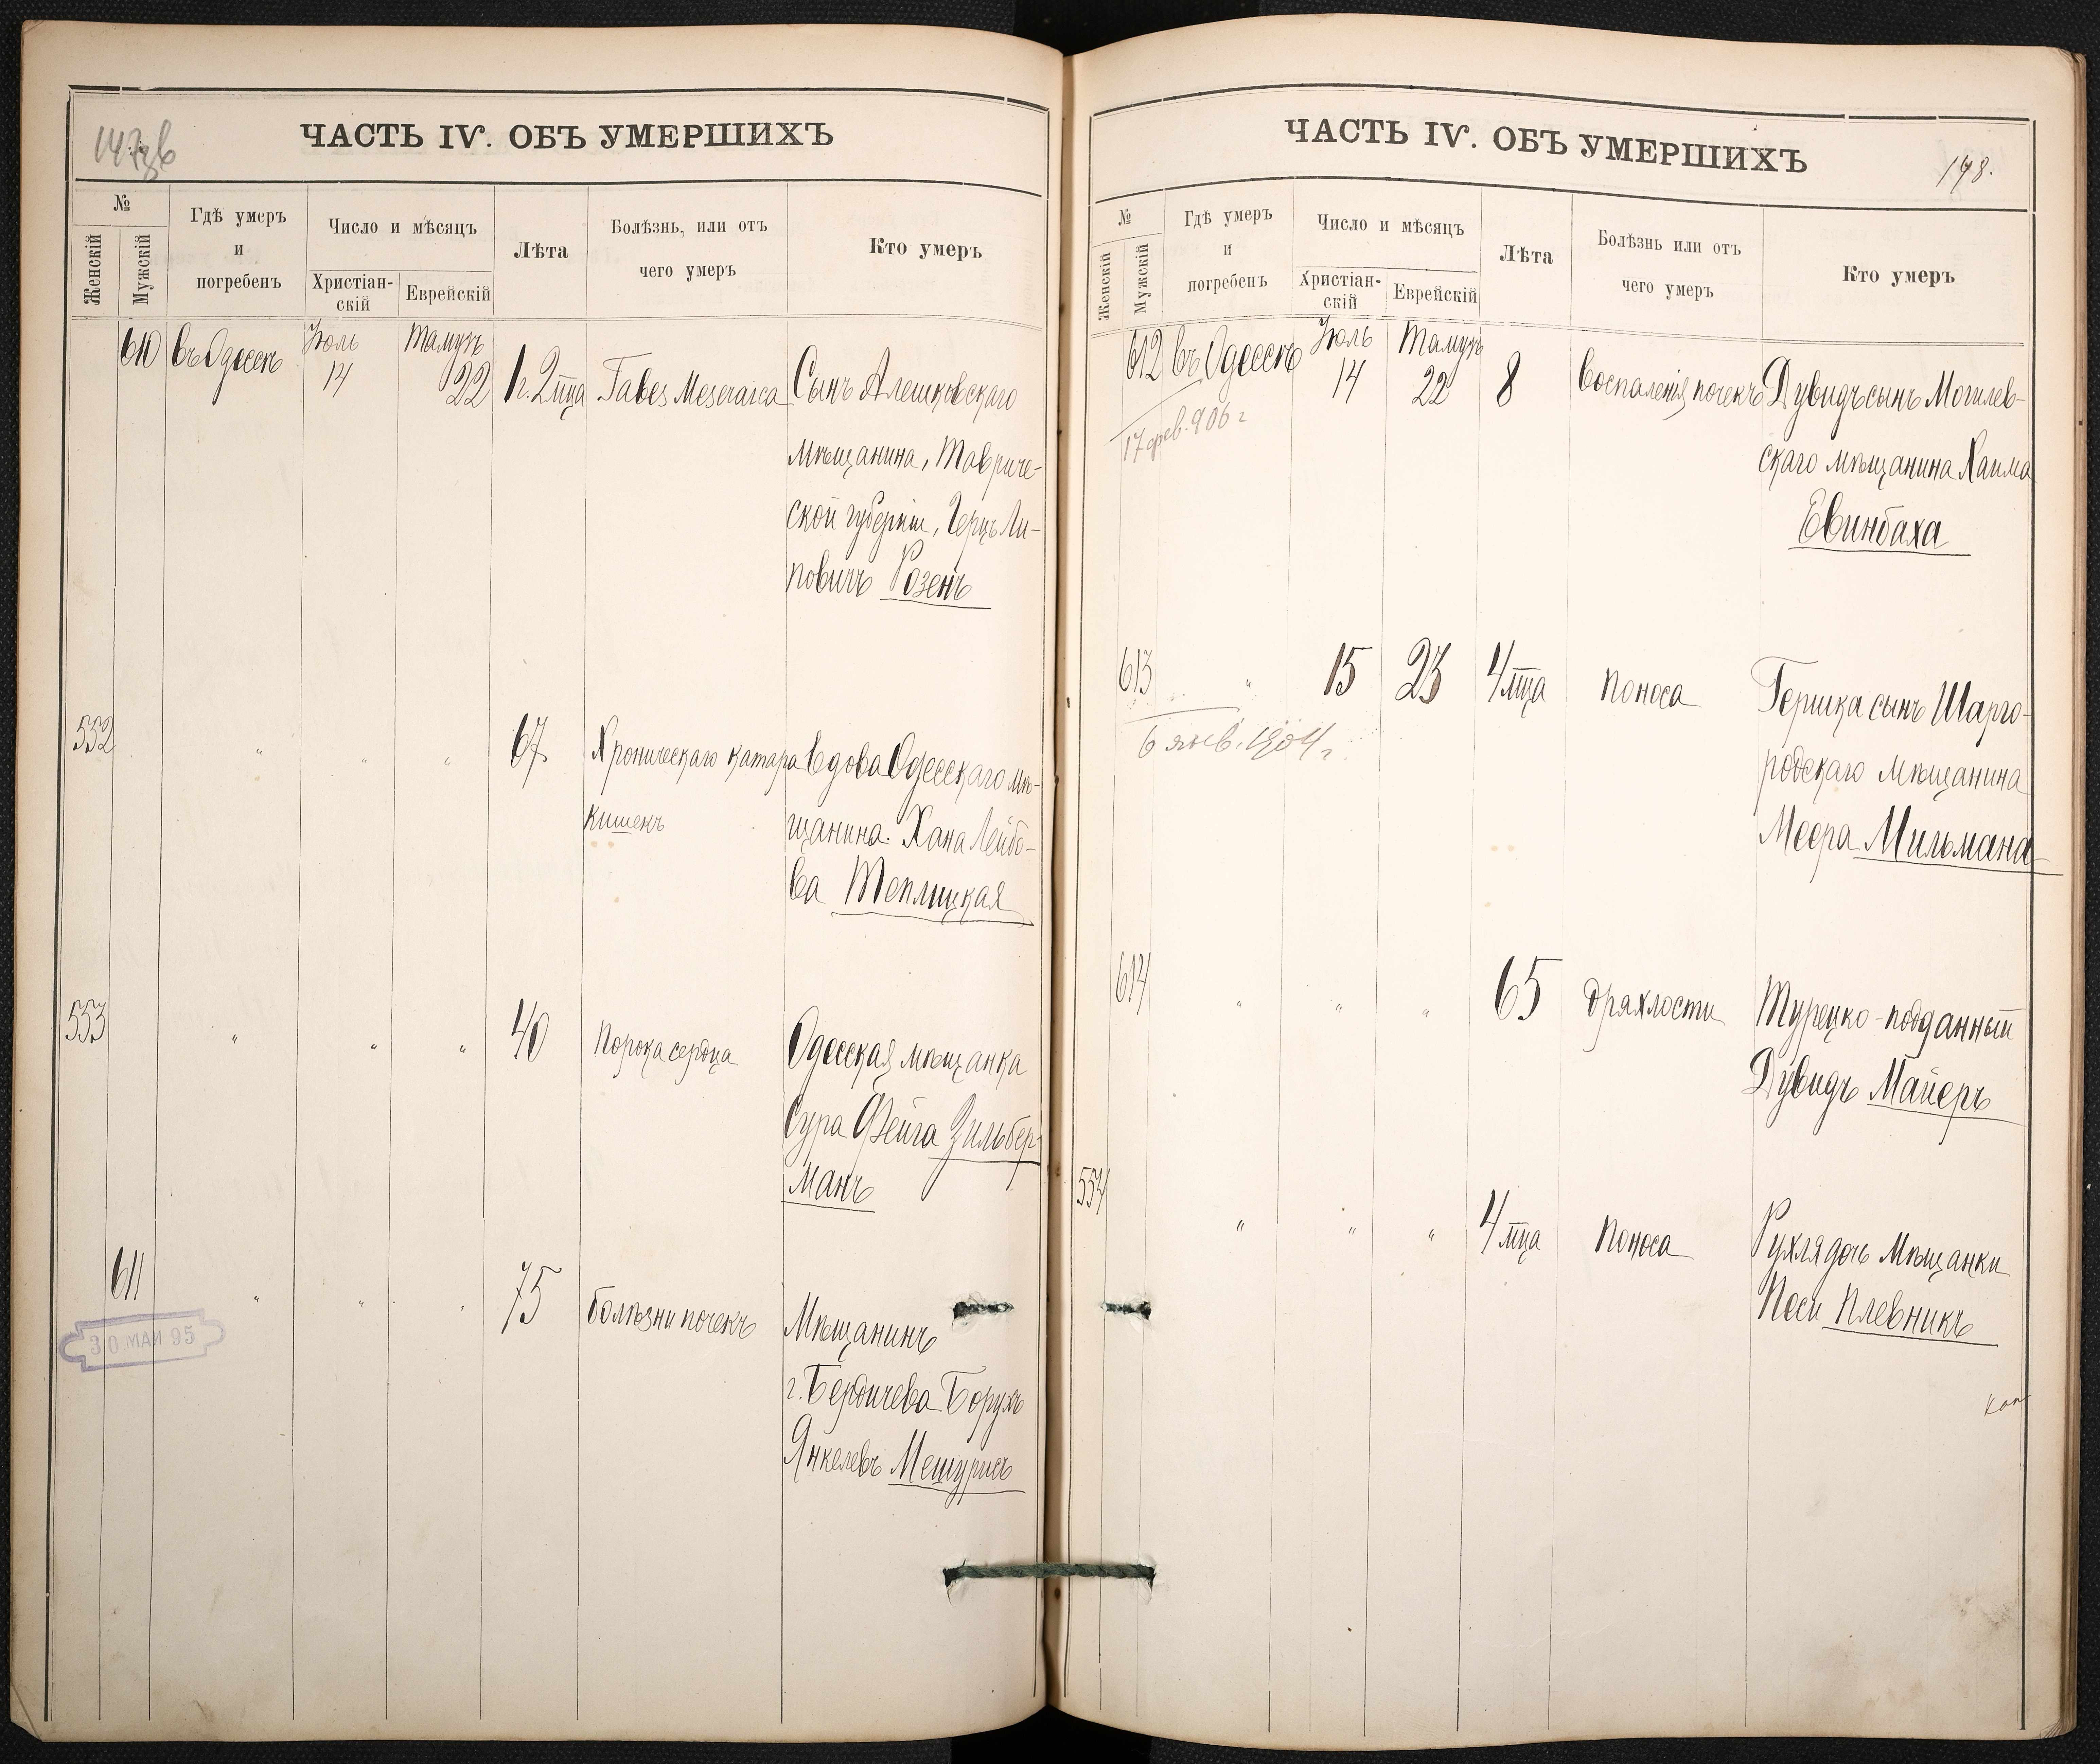 ЧАСТЬ IV. ОБЪ УМЕРШИХЪ
№
Женскій
Мужскій
Гдѣ умеръ
и
погребенъ
Число и мѣсяцъ
Христіан-
скій
Еврейскій
Лѣта
Болѣзнь, или отъ
чего умеръ
Кто умеръ
610 въ Одессѣ Іюль 14 Тамузъ 22 1 г. 2 мца Tabes Meseraica Сынъ Алешковскаго
мѣщанина, Тавриче-
ской губерніи, Герцъ Ли-
повичъ Розенъ
552 " " " 67 Хроническаго катара Вдова Одесскаго мѣ-
кишекъ щанина Хана Лейбо-
ва Теплицкая
553 " " " 40 Порока сердца Одесская мѣщанка
Сура Фейга Зильбер-
манъ
611 " " " 75 болѣзни почекъ Мѣщанинъ
30 МАЯ 95
г. Бердичева Борухъ
Янкелевъ Мешурисъ
ЧАСТЬ IV. ОБЪ УМЕРШИХЪ
148.
№
Женскій
Мужскій
Гдѣ умеръ
и
погребенъ
Число и мѣсяцъ
Христіан-
скій
Еврейскій
Лѣта
Болѣзнь или отъ
чего умеръ
Кто умеръ
612 въ Одессѣ Іюль 14 Тамузъ 22 8 Воспаленія почекъ Дувидъ сынъ Могилев-
17 фев. 906 г
скаго мѣщанина Хаима
Евинбаха
613 " 15 23 4 мца Поноса Гершка сынъ Шарго-
6 янв. 1904 г.
родскаго мѣщанина
Меера Мильмана
614 " " " 65 дряхлости Турецко-подданный
Дувидъ Майеръ
554 " " " 4 мца Поноса Рухля дочь Мѣщанки
Песи Плевникъ